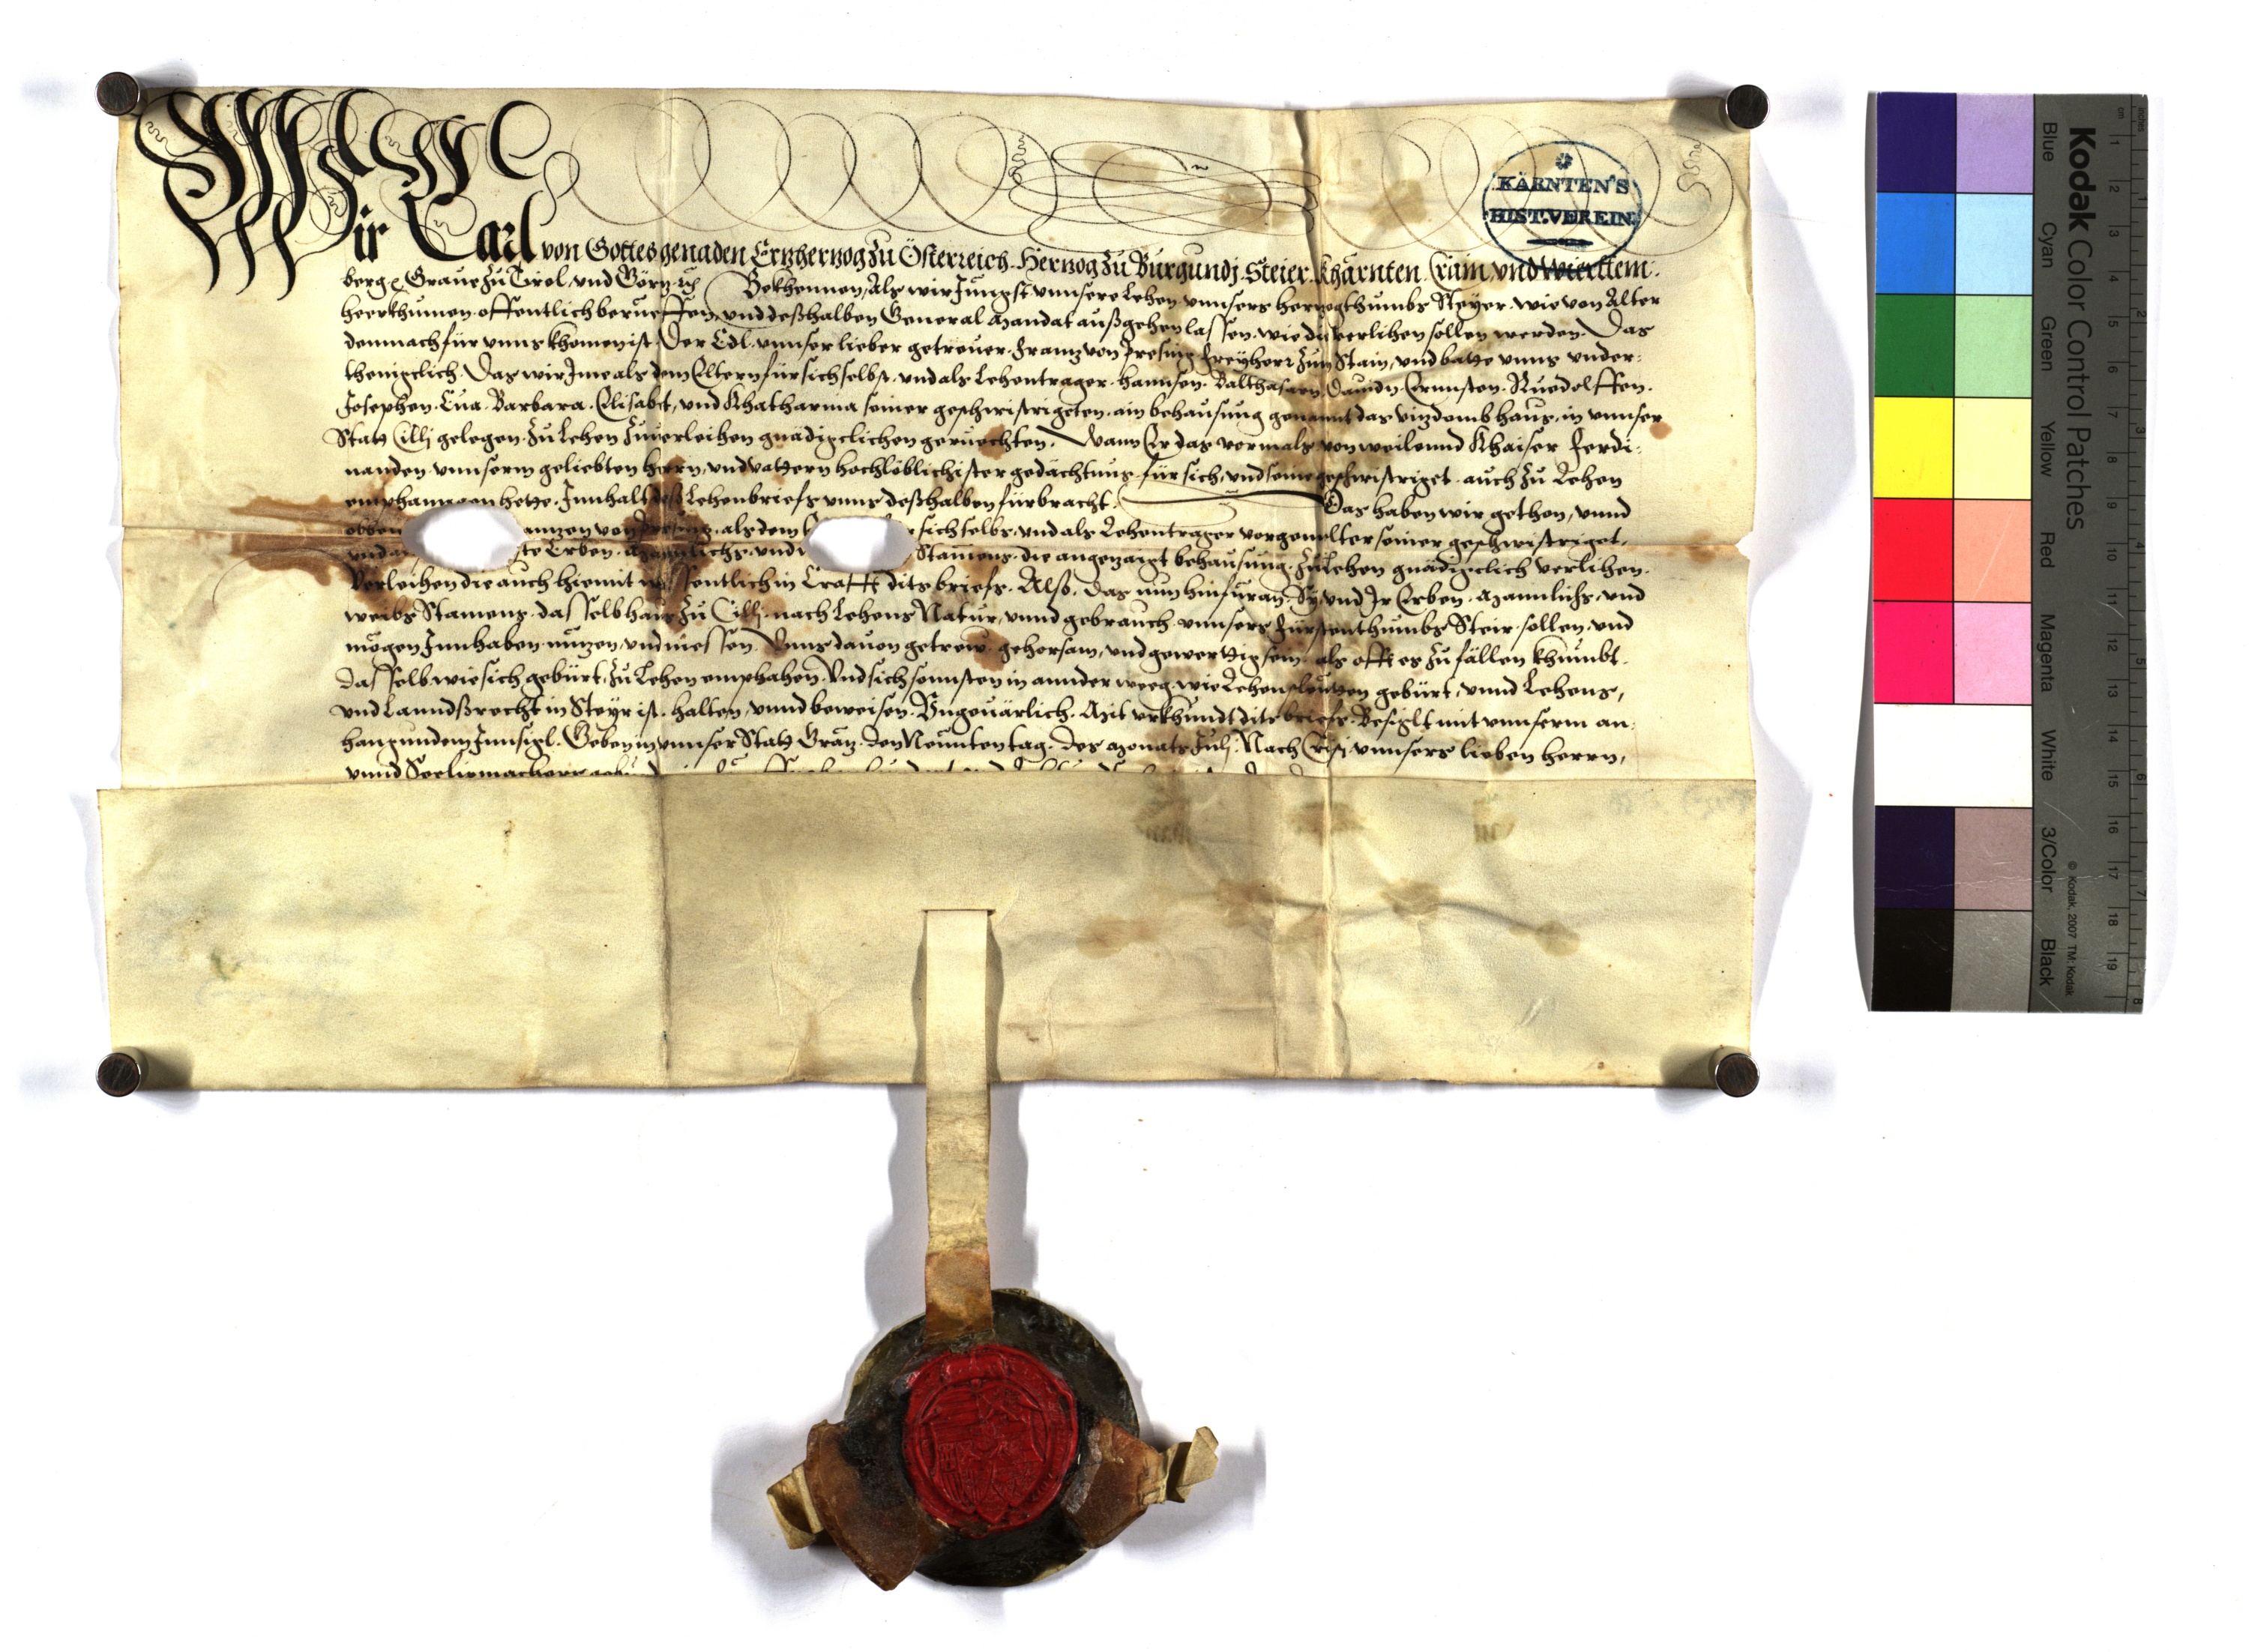 Wir Carl von Gottes genaden Ertzhertzog zu Österreich. Hertzog zu Burgundj. Steier. Khärnten. Crain, vnd Wierttem:
berg &c. Graue zu Tirol, vnd Görtz. &c. Bekhennen, Als wir Jungst vnnsere Lehen vnnsers hertzogthumbs Steyer. wie von Alter
heerkhumen. offentlich berueffen, vnd deßhalben General Mandat außgehen lassen. wie die verlihen sollen werden. Das
demnach für vnns khomen ist. Der Edl. vnnser lieber getreuer. Frantz von Presing Freyherr zum Stain, vnd batte vnns vnder:
theniclich. Das wir Jme als dem Eltern für sich selbst. vnd als Lehentrager. hannsen. Balthasarn. Dauidn. Ernnsten. Ruedolffen.
Josephen. Eua. Barbara. Elisabet, vnd Khatharina seiner geschwistrigeten. ain behausung genannt das vizdomb haus. in vnnser
Statt Cilli gelegen. zu Lehen zuuerleihen gnädigclichen geruechten. Wann Er das vormals von weilennd Khaiser Ferdi:
nanden. vnnserm geliebten herrn, vnd vattern hochlöblichister gedächtnus. für sich, vnd seine geschwistriget. auch zu Lehen
emphanngen hette. Jnnhalt deß Lehenbriefs vnns deßhalben fürbracht. Das haben wir gethon, vnnd
obben antzen von Presing. als dem sich selbs. vnd als Lehentrager vorgemelter seiner geschwistriget.
vnd Erben. Mannlichs. vnd Stamens. die angetzaigt behausung. zu Lehen gnädigclich verlihen.
Verleihen die auch hiemit wissentlich in Crafft dits briefs. Also. Das nun hinfüran. Sy, vnd Jr Erben. Mannlichs, vnd
weibs Stamens. dasselb haus zu Cilli. nach Lehens Natur, vnnd gebrauch vnnsers Fürstenthumbs Steir. sollen. vnd
mögen Jnnhaben. nutzen, vnd niessen. Vnns dauon getrew. gehorsam, vnd gewerttig sein. als offt es zu fällen khumbt.
dasselb. wie sich gebürt. zu Lehen emphahen. Vnd sich sonnsten in annder weeg. wie Lehensleutten gebürt, vnnd Lehens,
vnd Lanndßrecht in Steyr ist. halten, vnnd beweisen. Vngeuärlich. Mit vrkhundt dits briefs. Besiglt mit vnnserm an:
hangundem Jnnsigl. Geben in vnnser Statt Grätz. den Neunten tag. des Monats Julj. Nach Cristi vnnsers lieben herrn,
vnnd Seeligmachers
KÄRNTEN'S
HIST. VEREIN.
Kodak Color Control Patches
Blue Cyan Green Yellow Red Magenta White 3/Color Black
© Kodak, 2007 TM: Kodak
inches
cm
1 2 3 4 5 6 7 8 9 10 11 12 13 14 15 16 17 18 19
1 2 3 4 5 6 7 8